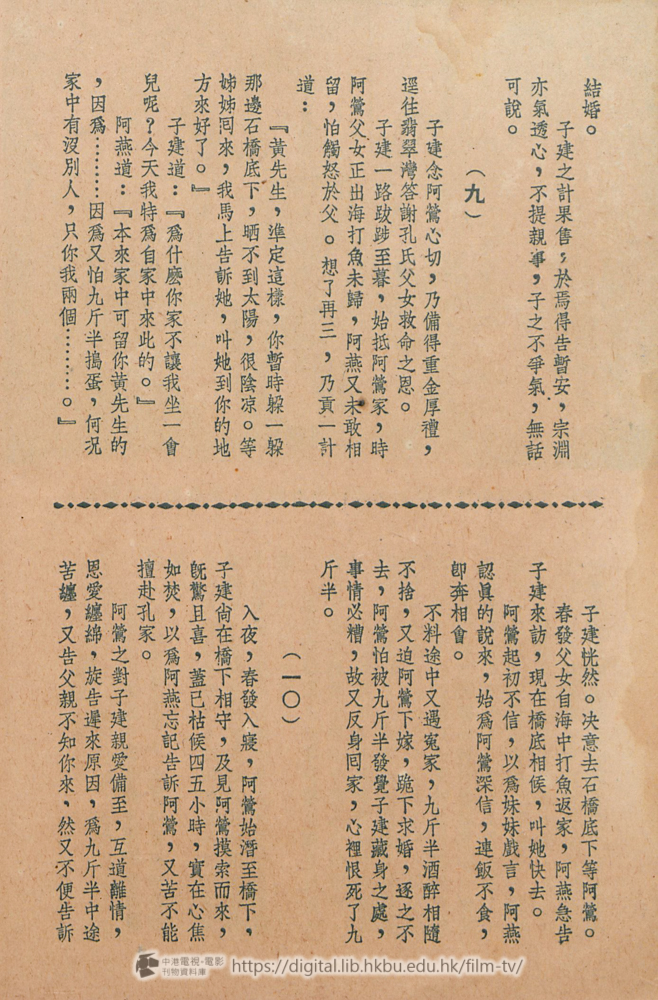 結婚。
子建之計果售，於焉得告暫安，宗淵
亦氣透心，不提親事，子之不爭氣，無話
可說。
（九）
子建念阿鶯心切，乃備得重金厚禮，
逕往翡翠灣答謝孔氏父女救命之恩。
子建一路跋踄至暮，始抵阿鶯家，時
阿鶯父女正出海打魚未歸，阿燕又未敢相
留，怕觸怒於父。想了再三，乃貢一計
道：
『黃先生，準定這樣，你暫時躱一躱
那邊石橋底下，晒不到太陽，很陰凉。等
姊姊囘來，我馬上告訴她，叫她到你的地
方來好了。』
子建道：『爲什麼你家不讓我坐一會
兒呢？今天我特爲自家中來此的。』
阿燕道：『本來家中可留你黃先生的
，因爲………因爲又怕九斤半搗蛋，何況
家中有沒別人，只你我兩個………。』
子建恍然。决意去石橋底下等阿鶯。
春發父女自海中打魚返家，阿燕急告
子建來訪，現在橋底相候，叫她快去。
阿鶯起初不信，以爲妹妹戲言，阿燕
認眞的說來，始爲阿鶯深信，連飯不食，
卽奔相會。
不料途中又遇寃家，九斤半酒醉相隨
不捨，又迫阿鶯下嫁，跪下求婚，逐之不
去，阿鶯怕被九斤半發覺子建藏身之處，
事情必糟，故又反身囘家，心裡恨死了九
斤半。
（一〇）
入夜，春發入寢，阿鶯始潛至橋下，
子建尙在橋下相守，及見阿鶯摸索而來，
旣驚且喜，蓋已枯候四五小時，實在心焦
如焚，以爲阿燕忘記告訴阿鶯，又苦不能
擅赴孔家。
阿鶯之對子建親愛備至，互道離情，
恩愛纏綿，旋告遲來原因，爲九斤半中途
苦纏，又告父親不知你來，然又不便告訴
中港電視・電影
刊物資料庫
https://digital.lib.hkbu.edu.hk/film-tv/